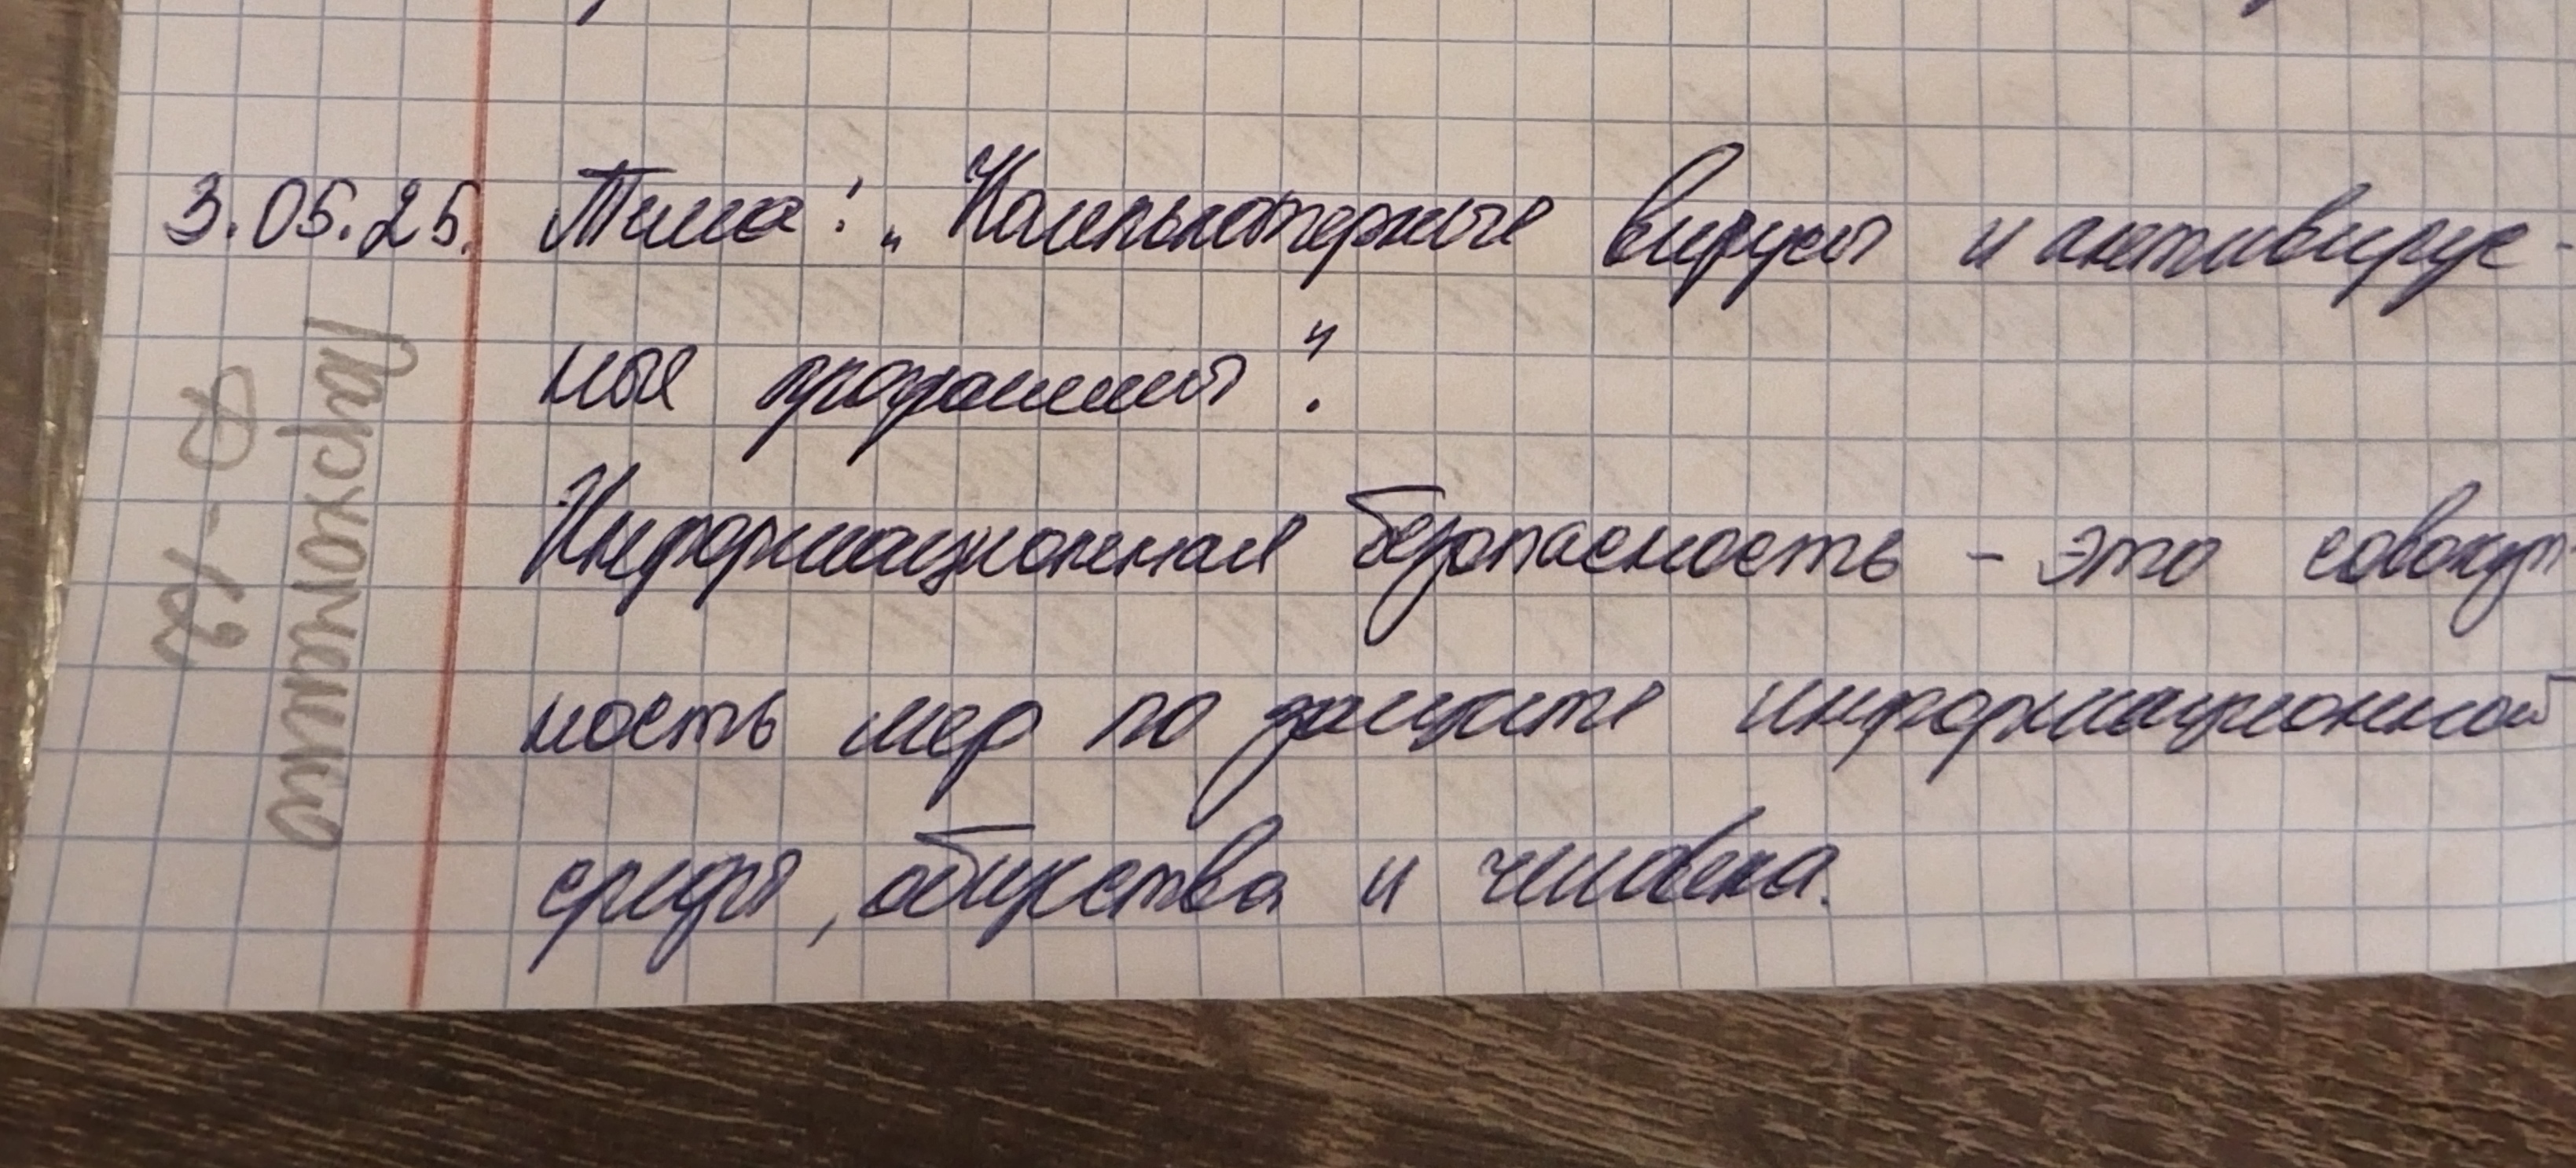 3.05.25. Тема: „Компьютерные вирусы и антивирус-
ные программы".
Информационная безопасность - это совокуп-
ность мер по защите информационной
среды, общества и человека.
Ф-12